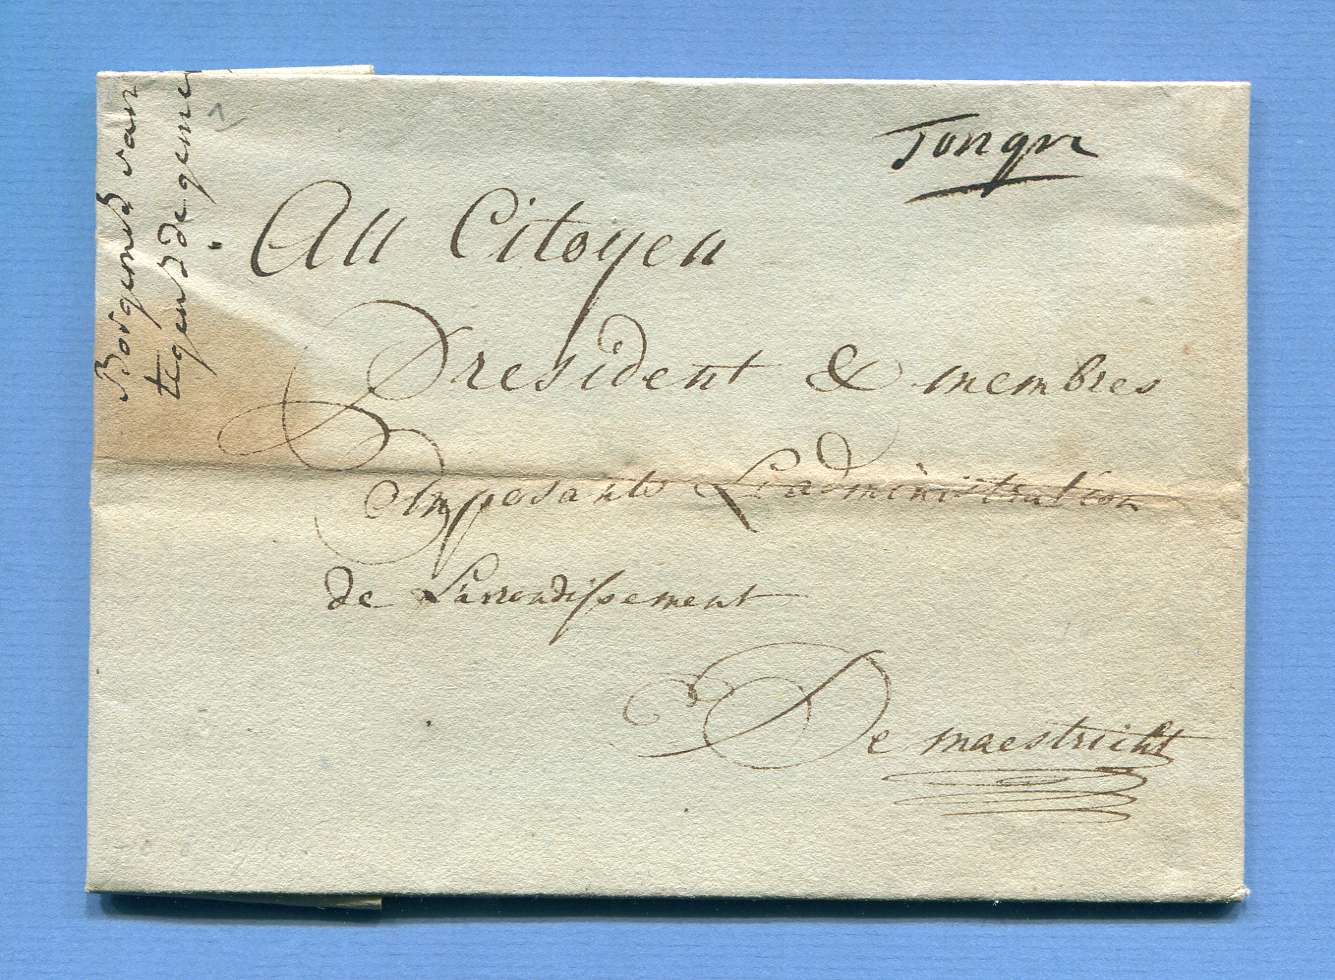 Tongre
Au Citoyen
President & membres
Composants L'administration
de L'arrondissement
De maestricht
Borgemrs van
tegen de gemei